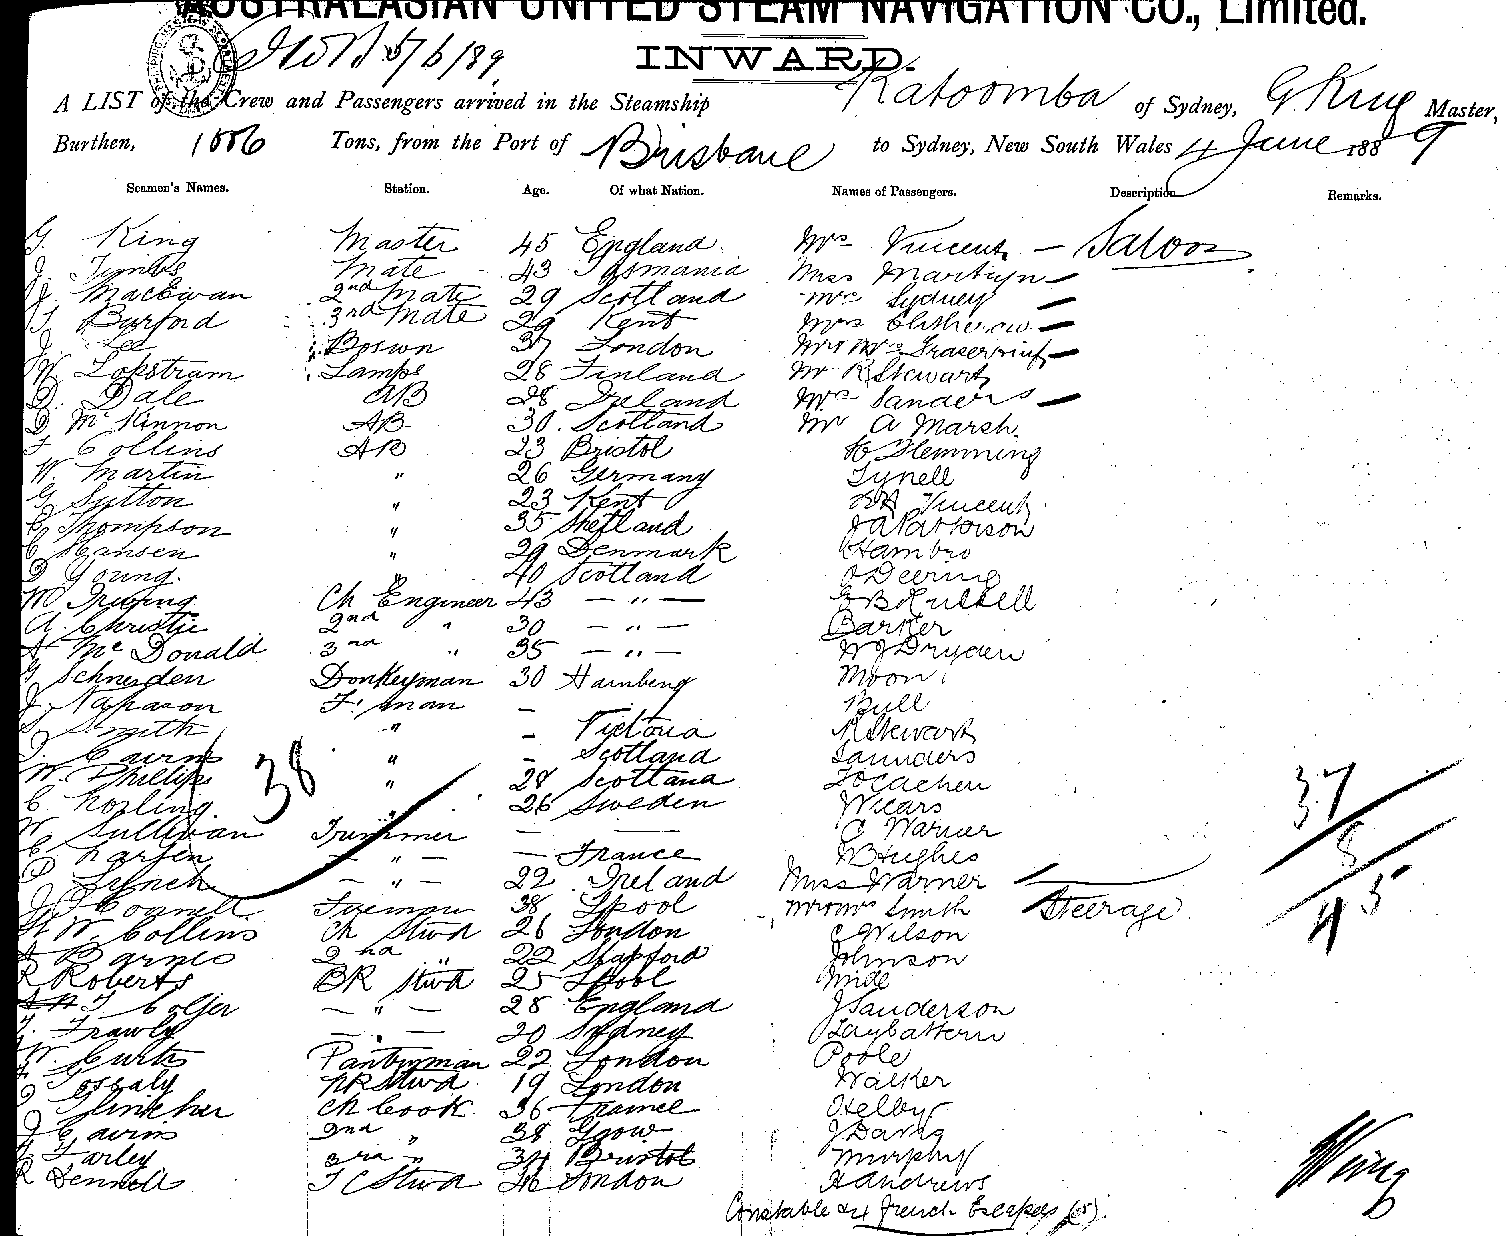 AUSTRALASIAN UNITED STEAM NAVIGATION CO., Limited.
5/6/89
INWARD.
A LIST of the Crew and Passengers arrived in the Steamship Katoomba of Sydney, G King Master,
Burthen, 1006 Tons, from the Port of Brisbane to Sydney, New South Wales 4 June 1889
Seamen's Names. Station. Age. Of what Nation. Names of Passengers. Description Remarks.
G. King Master 45 England Mrs Vincent — Saloon
J. Mate 43 Tasmania Miss Martyn —
J. MacEwan 2nd Mate 29 Scotland Sydney —
Burford 3rd Mate 29 Kent Mrs Clitherow —
J. Lee Boswn 37 London Mr & Mrs —
W. Lopstram Lamps 28 Finland Mr R Stewart
D. Dale AB 28 Ireland Mrs Sanders —
D McKinnon AB 30 Scotland Mr A Marsh.
F Collins AB 23 Bristol H Flemming
W. Martin " 26 Germany Tynell
G Sutton " 23 Kent Vincent
C Thompson " 35 Shetland J A Patterson
C Hansen " 29 Denmark Hambro
D Young. " 40 Scotland Deering
M Irving Ch Engineer 43 — " — G B Russell
A. Christie 2nd " 30 — " — Barker
A McDonald 3rd " 35 — " — W J Dryden
G Schneiden Donkeyman 30 Hamburg Moon
J. F'man — Bull
S Smith " — Victoria R Stewart
J. Cairns " — Scotland Saunders
W. Phillips 38 " 28 Scotland 37
C. Norling. " 26 Sweden Wears
W Sullivan Trimmer — — C Warner 8
C Larsen — " — — France Hughes
P Lynch — " — 22 Ireland Miss Warner —
J Connell Fireman 38 Lpool Mr & Mrs Smith Steerage 45
W. Collins Ch Stwd 26 London C Wilson
A Barnes 2nd " 22 Stafford Johnson
R Roberts BR Stwd 25 Lpool
T Coljer — " — 28 England J Sanderson
T. Frawly — " — 20 Sydney Laybattern
W. Curtis Pantryman 22 London Poole
Stwd 19 London Walker
Ch Cook 36 France Helby
J Cairns 2nd " 38 Ggow J Darng
A Farley 3rd " 34 Bristol Murphy
R Stwd London H Andrews
Constable & 4 French Escapees (5).